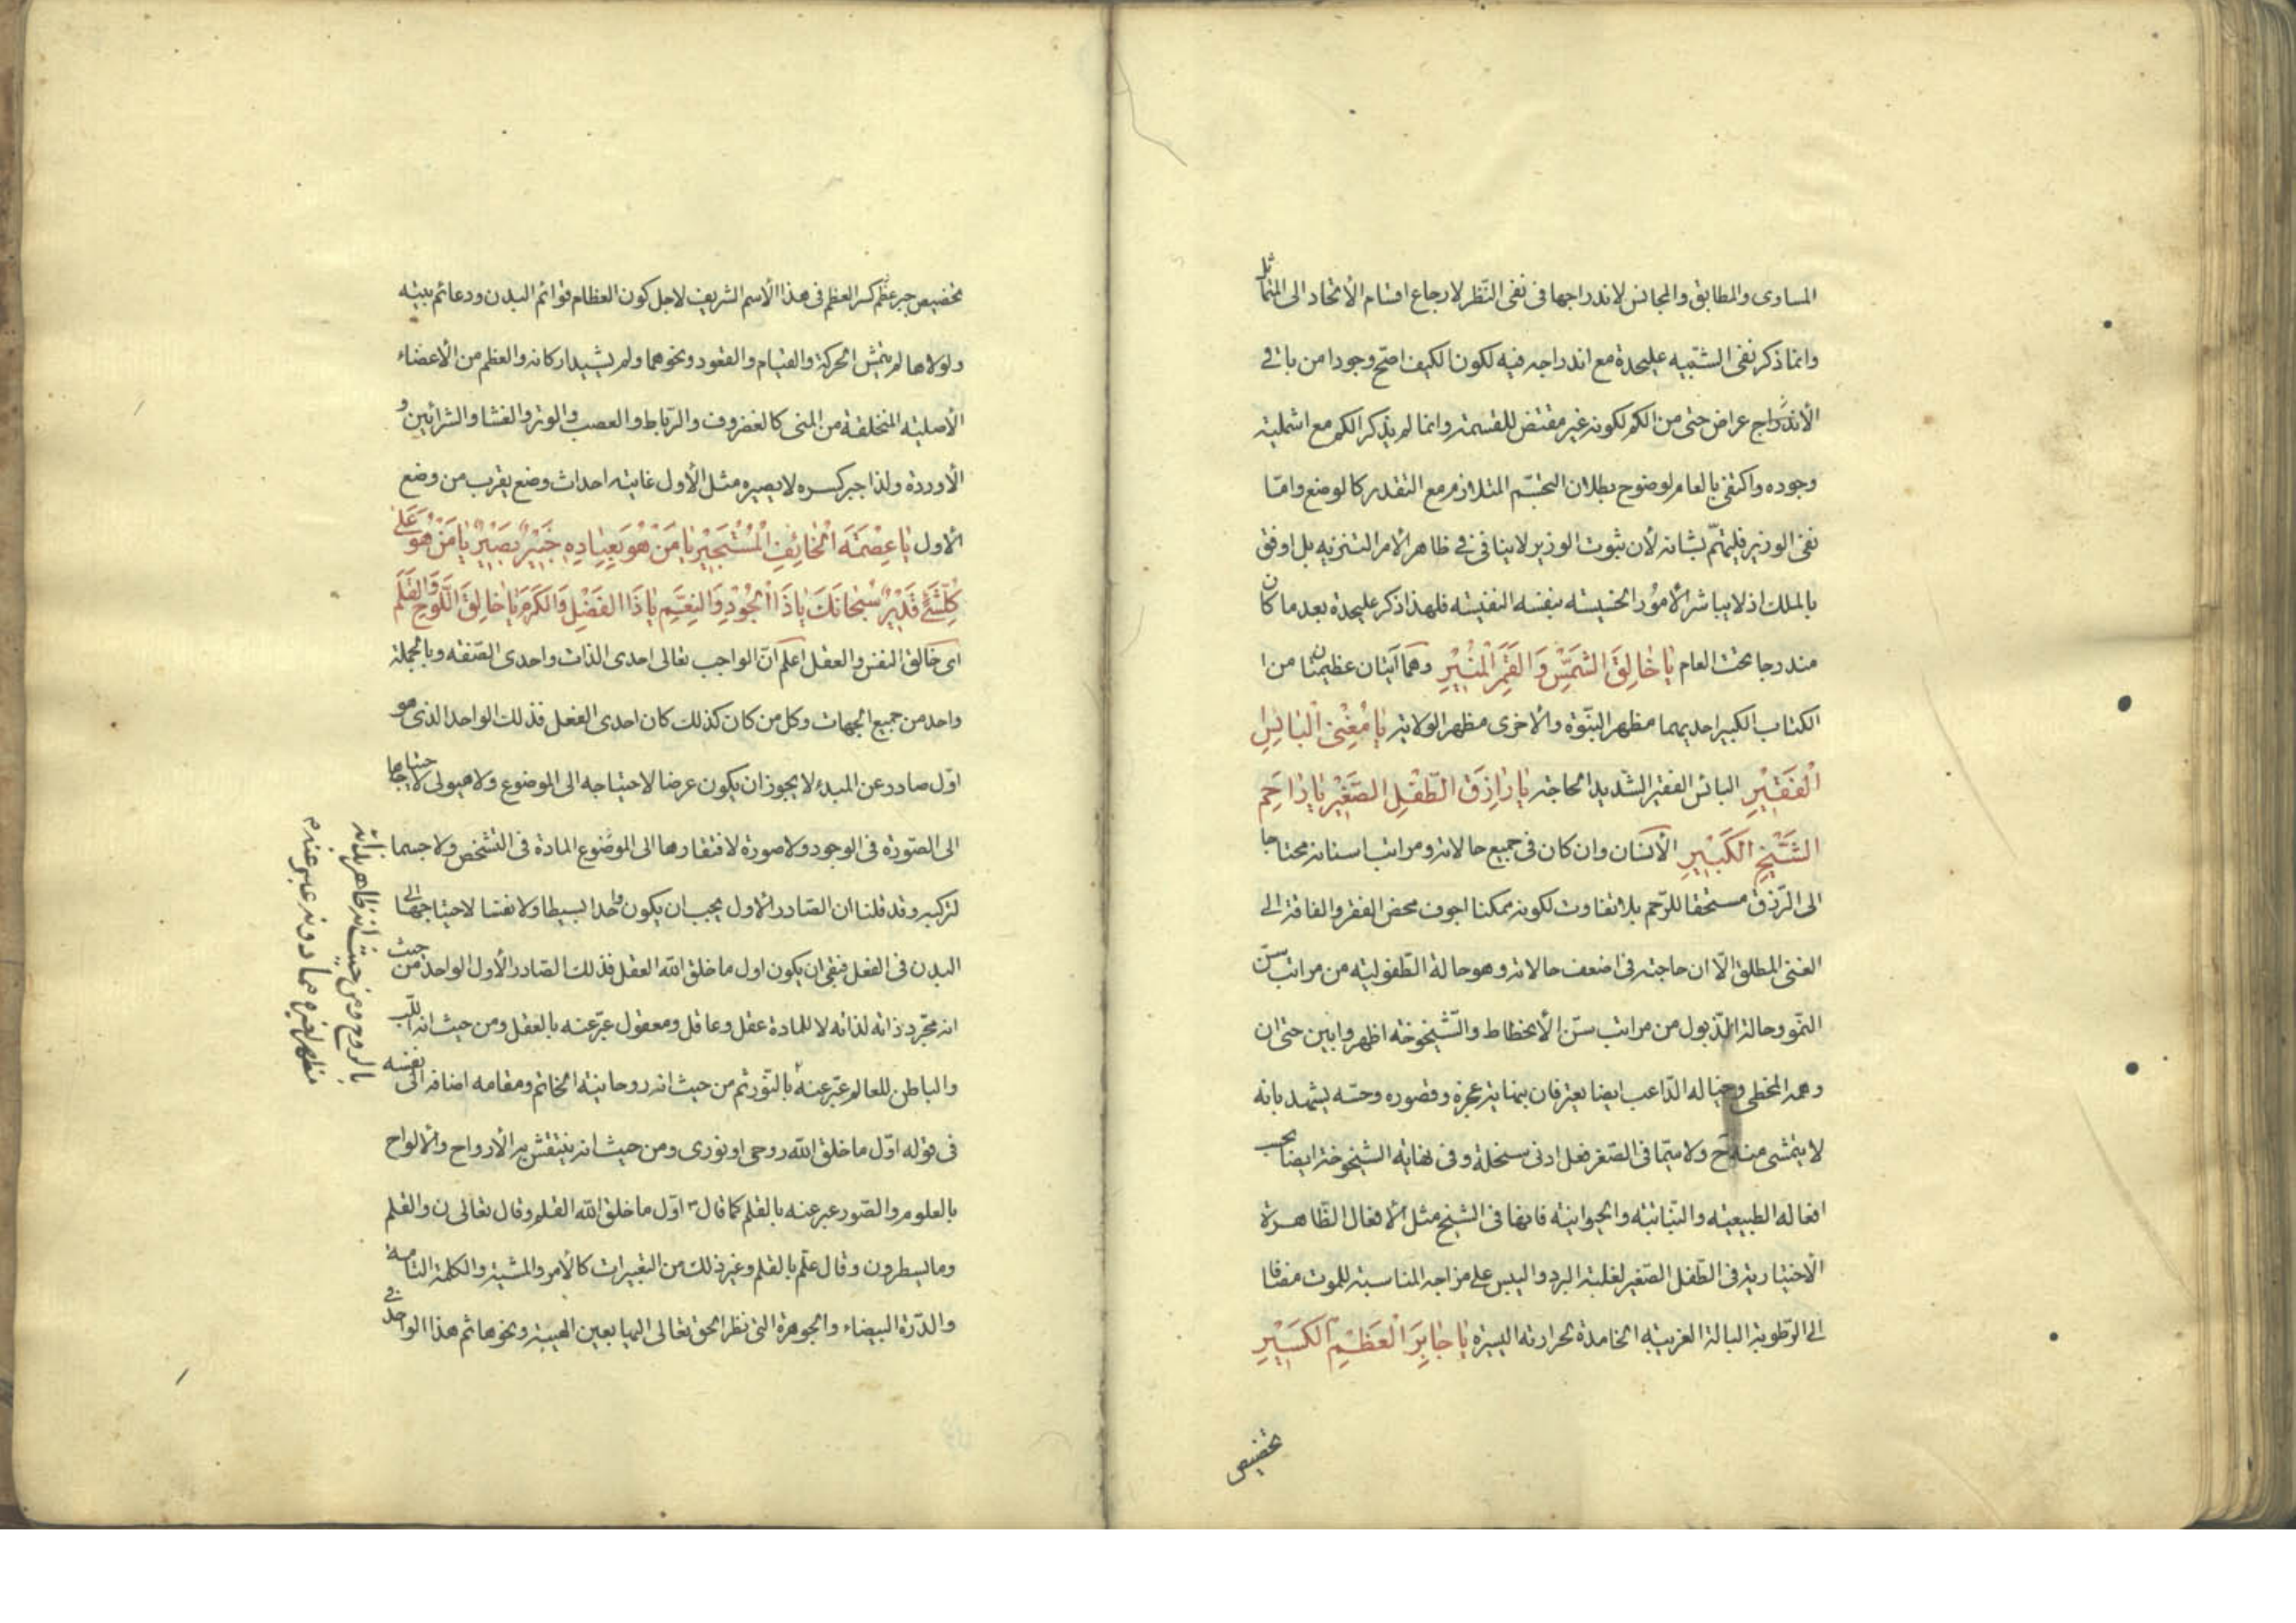 المساوى والمطابق والمجانس لاندراجها فى نفى النّظر لارجاع اقسام الأتحاد الى التماثل
وانما ذكر نفى الشّبيه عليحدة مع اندراجه فيه لكون الكيف اصّح وجودا من باقى
الأعراض حتى من الكم لكونه غير مقتض للقسمة وانما لم يذكر الكم مع اشملية
وجوده واكتفى بالعام لوضوح بطلان التجسّم المتلازم مع التقدر كالوضع وامّا
نفى الوزير فليهتمّ بشانه لأن ثبوت الوزير لاينافى فى ظاهر الامر التنزيه بل اوفق
بالملك اذ لايباشر الأمور الخسيسه بنفسه النفيسه فلهذا ذكر عليحدة بعد ما كان
مندرجا تحت العام يا خالِقَ الشَّمْسِ وَ القَمَرِ الْمُنيرِ وهما آيتان عظيمتان من ا
الكتاب الكبير احديهما مظهر النبّوة والأخرى مظهر الولاية يا مُغْنِىَ الْبائِسِ
الْفَقيْرِ البائس الفقير الشّديد الحاجة يا رازِقَ الطّفْلِ الصَّغيْرِ يا راحِمَ
الشَّيْخِ الكَبيْرِ الأنسان وان كان فى جميع حالاته ومراتب اسنانه محتاجا
الى الرّزق مستحقا للرّحم بلا تفاوت لكونه ممكنا اجوف محض الفقر والفاقة الى
الغنى المطلق الّا ان حاجته فى اضعف حالاته وهو حالة الطّفوليه من مراتب سنّ
النمّو وحالة الذّبول من مراتب سنّ الأنحطاط والشّيخوخه اظهر وابين حتى ان
وهمه المخطى وخياله الدّاعب ايضا يعترفان بنهاية عجزه وقصوره وحسّه يشهد بانه
لايتمشى منه ح ولاسيّما فى الصّغر فعل ادنى سنخلة وفى نهاية الشيخوخة ايضا بحسب
افعاله الطبيعيه والنبّاتيه والحيوانيه فانها فى الشيخ مثل الافعال الظاهرة
الأختيارية فى الطّفل الصّغير لغلبة البرد واليبس على مزاجه المناسبة للموت مضافا
الى الرّطوبة البالة الغريبه الخامدة لحرارته اليسيرة يا جابِرَ الْعَظْمِ الكَسيْرِ
تخصيص
تخصيص جبر عظم كسر العظم فى هذا الأسم الشريف لاجل كون العظام قوائم البدن ودعائم بيته
ولولاها لم يتمش الحركة والقيام والقعود ونحوهما ولم يشيد اركانه والعظم من الأعضاء
الأصليه المنخلقة من المنى كالغضروف والرّباط والعصب والوتر والغشا والشرائين و
الأوردة ولذا جبر كسره لايصيره مثل الأول غايته احداث وضع يقرب من وضع
الأول يا عِصْمَةَ الْخائِفِ الْمُسْتَجيْرِ يا مَنْ هُوَ بِعِبادِهِ خَبيْرٌ بَصيْرٌ يا مَنْ هُوَ عَلى
كُلِّ شَئٍ قَديْرٌ سُبْحانَكَ يا ذَا الْجُوْدِ وَالنِعَمِ يا ذَا الفَضْلِ وَالكَرَمِ يا خالِقَ اللَّوْحِ وَالقَلَمِ
اى خالق النفس والعقل اعلم انّ الواجب تعالى احدى الذات واحدى الصّفه وبالجملة
واحد من جميع الجهات وكل من كان كذلك كان احدى الفعل فذلك الواحد الذى هو
اوّل صادر عن المبدء لايجوز ان يكون عرضا لاحتياجه الى الموضوع ولا هيولى لاحتياجها
الى الصّورة فى الوجود ولا صورة لافتقارها الى الموضوع المادة فى التشخص ولا جسما
لتركبه وقد قلنا ان الصّادر الأول يجب ان يكون واحدا بسيطا ولا نفسا لاحتياجها الى
البدن فى الفعل فبقى ان يكون اول ما خلق الله العقل فذلك الصّادر الأول الواحد من حيث
انه مجرّد ذاته لذاته لا للمادة عقل وعاقل ومعقول عبّر عنه بالعقل ومن حيث انه اللب
والباطن للعالم عبّر عنه بالنّور ثم من حيث انه روحانية الخاتم ومقامه اضافه الى نفسه
فى قوله اوّل ما خلق الله روحى او نورى ومن حيث انه ينتقش به الأرواح والألواح
بالعلوم والصّور عبر عنه بالقلم كما قال ص اوّل ما خلق الله القلم وقال تعالى ن والقلم
وما يسطرون وقال علّم بالقلم وغير ذلك من التعبيرات كالأمر والمشية والكلمة التامة
والدّرة البيضاء والجوهرة التى نظر الحق تعالى اليها بعين الهيبة ونحوها ثم هذا الواحد فى
بالروح ومن حيث انه ظاهر بذاته
مظهر لغيره مما دونه عبر عنه